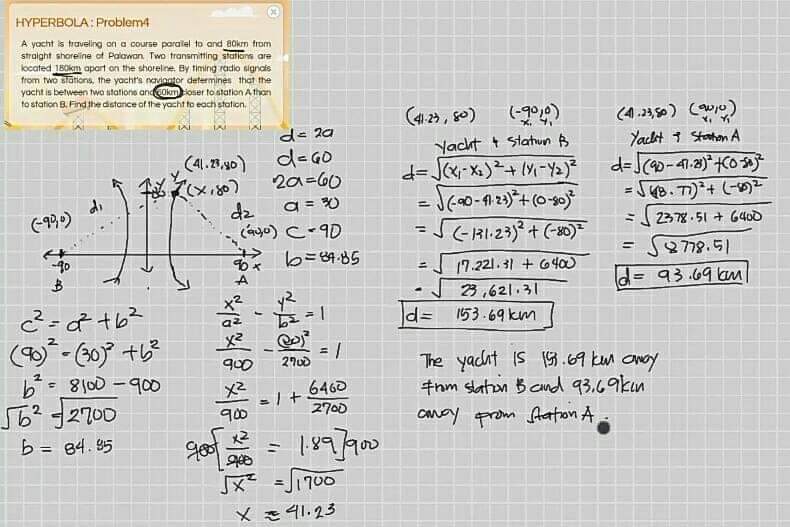 HYPERBOLA : Problem4
A yacht is traveling on a course parallel to and 80km from
straight shoreline of Palawan. Two transmitting stations are
located 180km apart on the shoreline. By timing radio signals
from two stations, the yacht's navigator determines that the
yacht is between two stations and 60km closer to station A than
to station B. Find the distance of the yacht to each station.
(41.23,80)
(x,80)
y
Y
80
d1
d2
(-90,0)
(90,0)
-90
90 x
B
A
c² = a² + b²
(90)² = (30)² + b²
b² = 8100 - 900
√b² = √2700
b = 84.85
d = 2a
d = 60
2a = 60
a = 30
c = 90
b = 84.85
x²/a² - y²/b² = 1
x²/900 - (80)²/2700 = 1
x²/900 = 1 + 6400/2700
900[x²/900 = 1.89]900
√x² = √1700
x ≈ 41.23
(41.23, 80) (-90,0)
x₁ y₁
Yacht & Station B
d = √(x₁-x₂)² + (y₁-y₂)²
= √(-90-41.23)² + (0-80)²
= √(-131.23)² + (-80)²
= √17.221.31 + 6400
= √23,621.31
d = 153.69 km
(41.23,80) (90,0)
x₁ y₁
Yacht & Station A
d = √(90-41.23)² + (0-80)²
= √(48.77)² + (-80)²
= √2378.51 + 6400
= √8778.51
d = 93.69 km
The yacht is 151.69 km away
from station B and 93.69 km
away from station A.